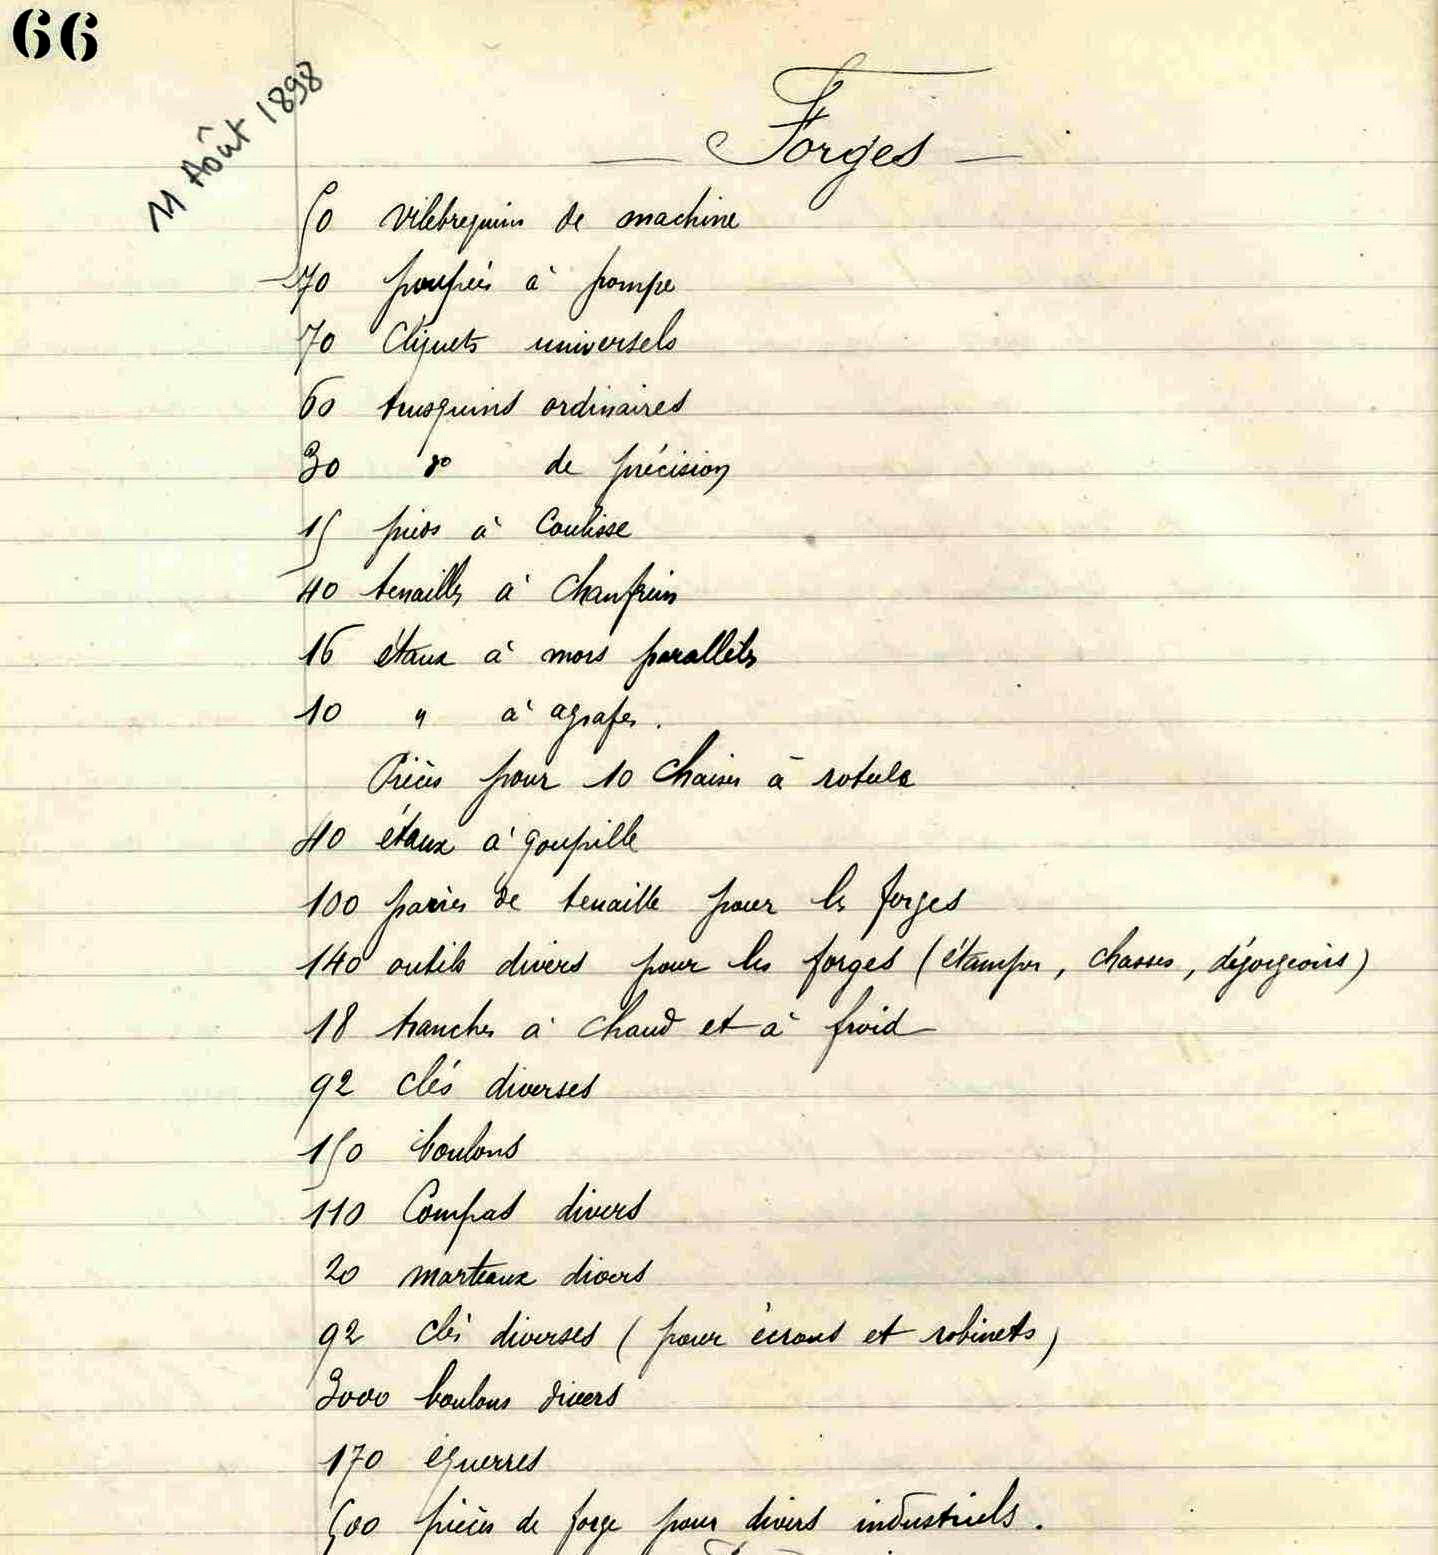 66
11 Août 1898
— Forges —
50 vilebrequins de machine
70 poupées à pompe
70 Cliquets universels
60 trusquins ordinaires
30 do de précision
15 pieds à Coulisse
40 tenailles à Chanfrein
16 étaux à mors parallèles
10 " à agrafes.
Pièces pour 10 Chaises à rotule
40 étaux à goupille
100 paires de tenaille pour les forges
140 outils divers pour les forges (étampes, chasses, dégorgeoirs)
18 tranches à chaud et à froid
92 clés diverses
150 boulons
110 Compas divers
20 marteaux divers
92 clés diverses (pour écrous et robinets)
3000 boulons divers
170 équerres
500 pièces de forge pour divers industriels.